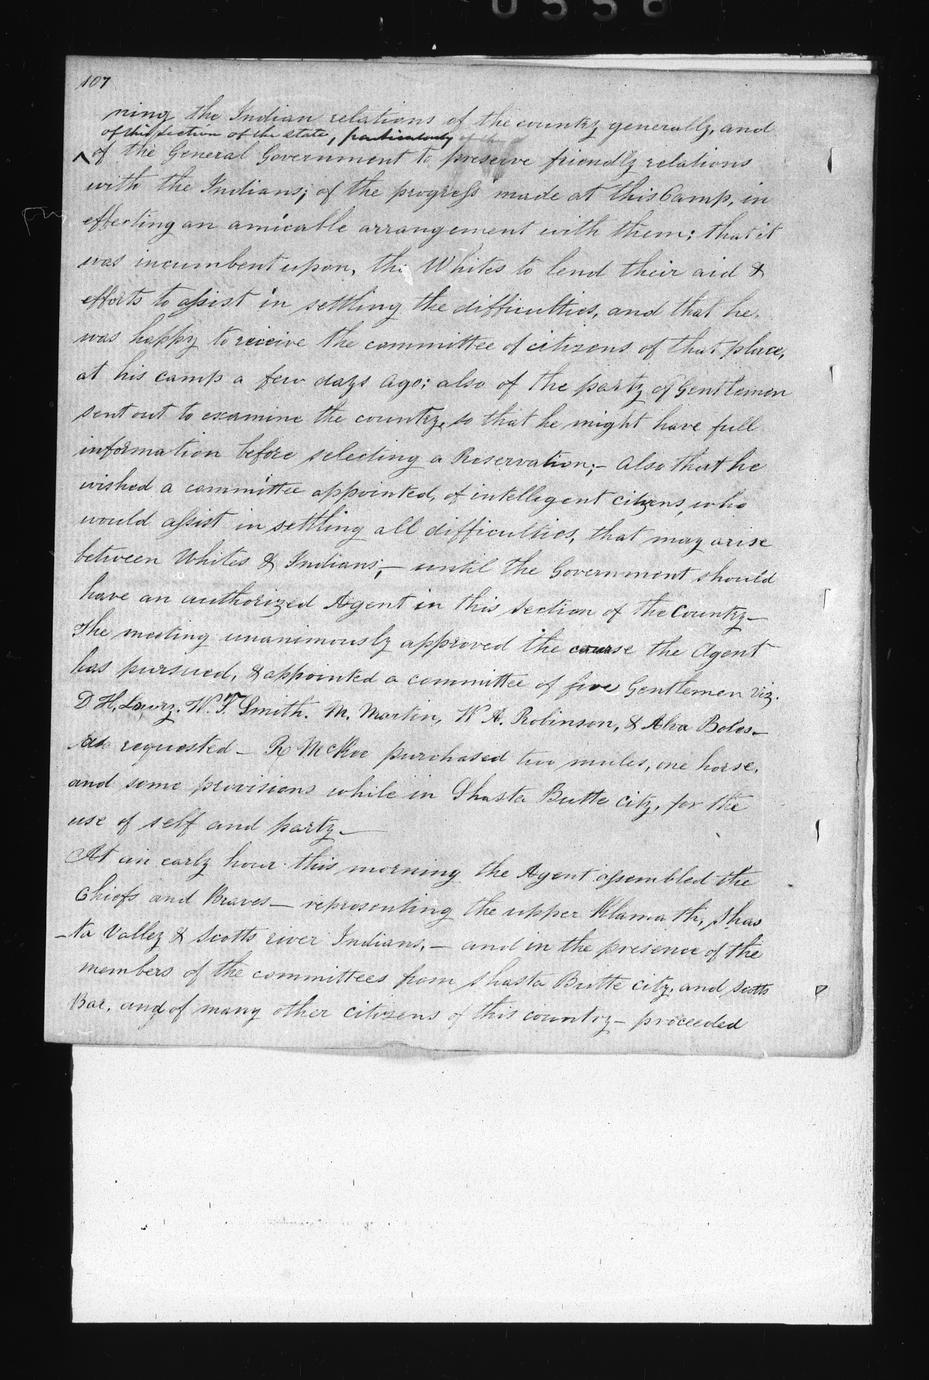 0556
107
ning the Indian relations of the country generally, and
of this section of the state, particularly
of the General Government to preserve friendly relations
with the Indians; of the progress made at this Camp, in
effecting an amicable arrangement with them; that it
was incumbent upon, the Whites to lend their aid &
efforts to assist in settling the difficulties, and that he
was happy to receive the committee of citizens of that place,
at his camp a few days ago; also of the party of Gentlemen
sent out to examine the country, so that he might have full
information before selecting a Reservation;– Also that he
wished a committee appointed, of intelligent citizens, who
would assist in settling all difficulties, that may arise
between Whites & Indians,– until the Government should
have an authorized Agent in this section of the Country–
The meeting unanimously approved the course the Agent
has pursued, & appointed a committee of five Gentlemen viz.
D H, Lowry. W. T. Smith. M. Martin, W A. Robinson, & Alva Boles–
as requested – R McKee purchased two mules, one horse,
and some provisions while in Shasta Butte city, for the
use of self and party–
At an early hour this morning the Agent assembled the
Chiefs and Braves – representing the upper Klamath, Shas
–ta Valley & Scotts river Indians, – and in the presence of the
members of the committees from Shasta Butte city, and Scotts
Bar, and of many other citizens of this country – proceeded